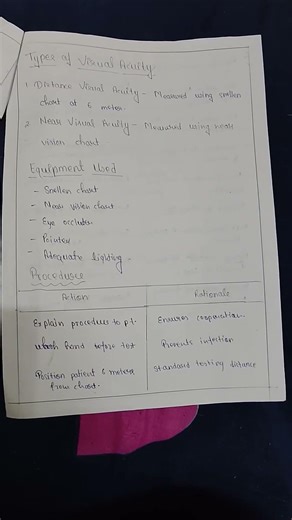 Types of Visual Acuity
1. Distance Visual Acuity - Measured using snellen
chart at 6 meter.
2. Near Visual Acuity - Measured using near
vision chart
Equipment Used
- Snellen chart
- Near vision chart
- Eye occluder
- Pointer
- Adequate lighting
Procedure
Action Rationale
Explain procedure to pt. Ensures cooperation
Wash hand before test Prevents infection
Position patient 6 meters Standard testing distance
from chart.